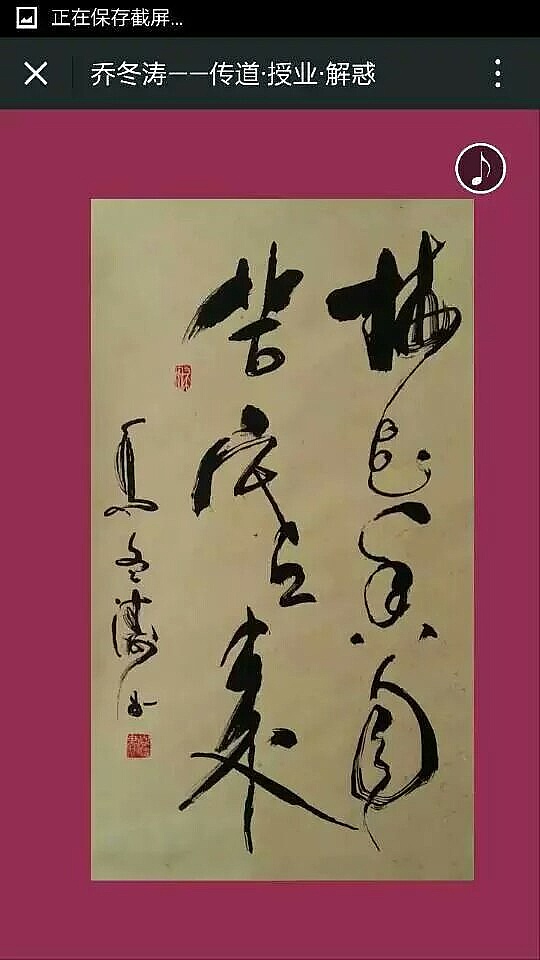 正在保存截屏...
乔冬涛——传道·授业·解惑
梅花香自
苦寒来
乔冬涛书